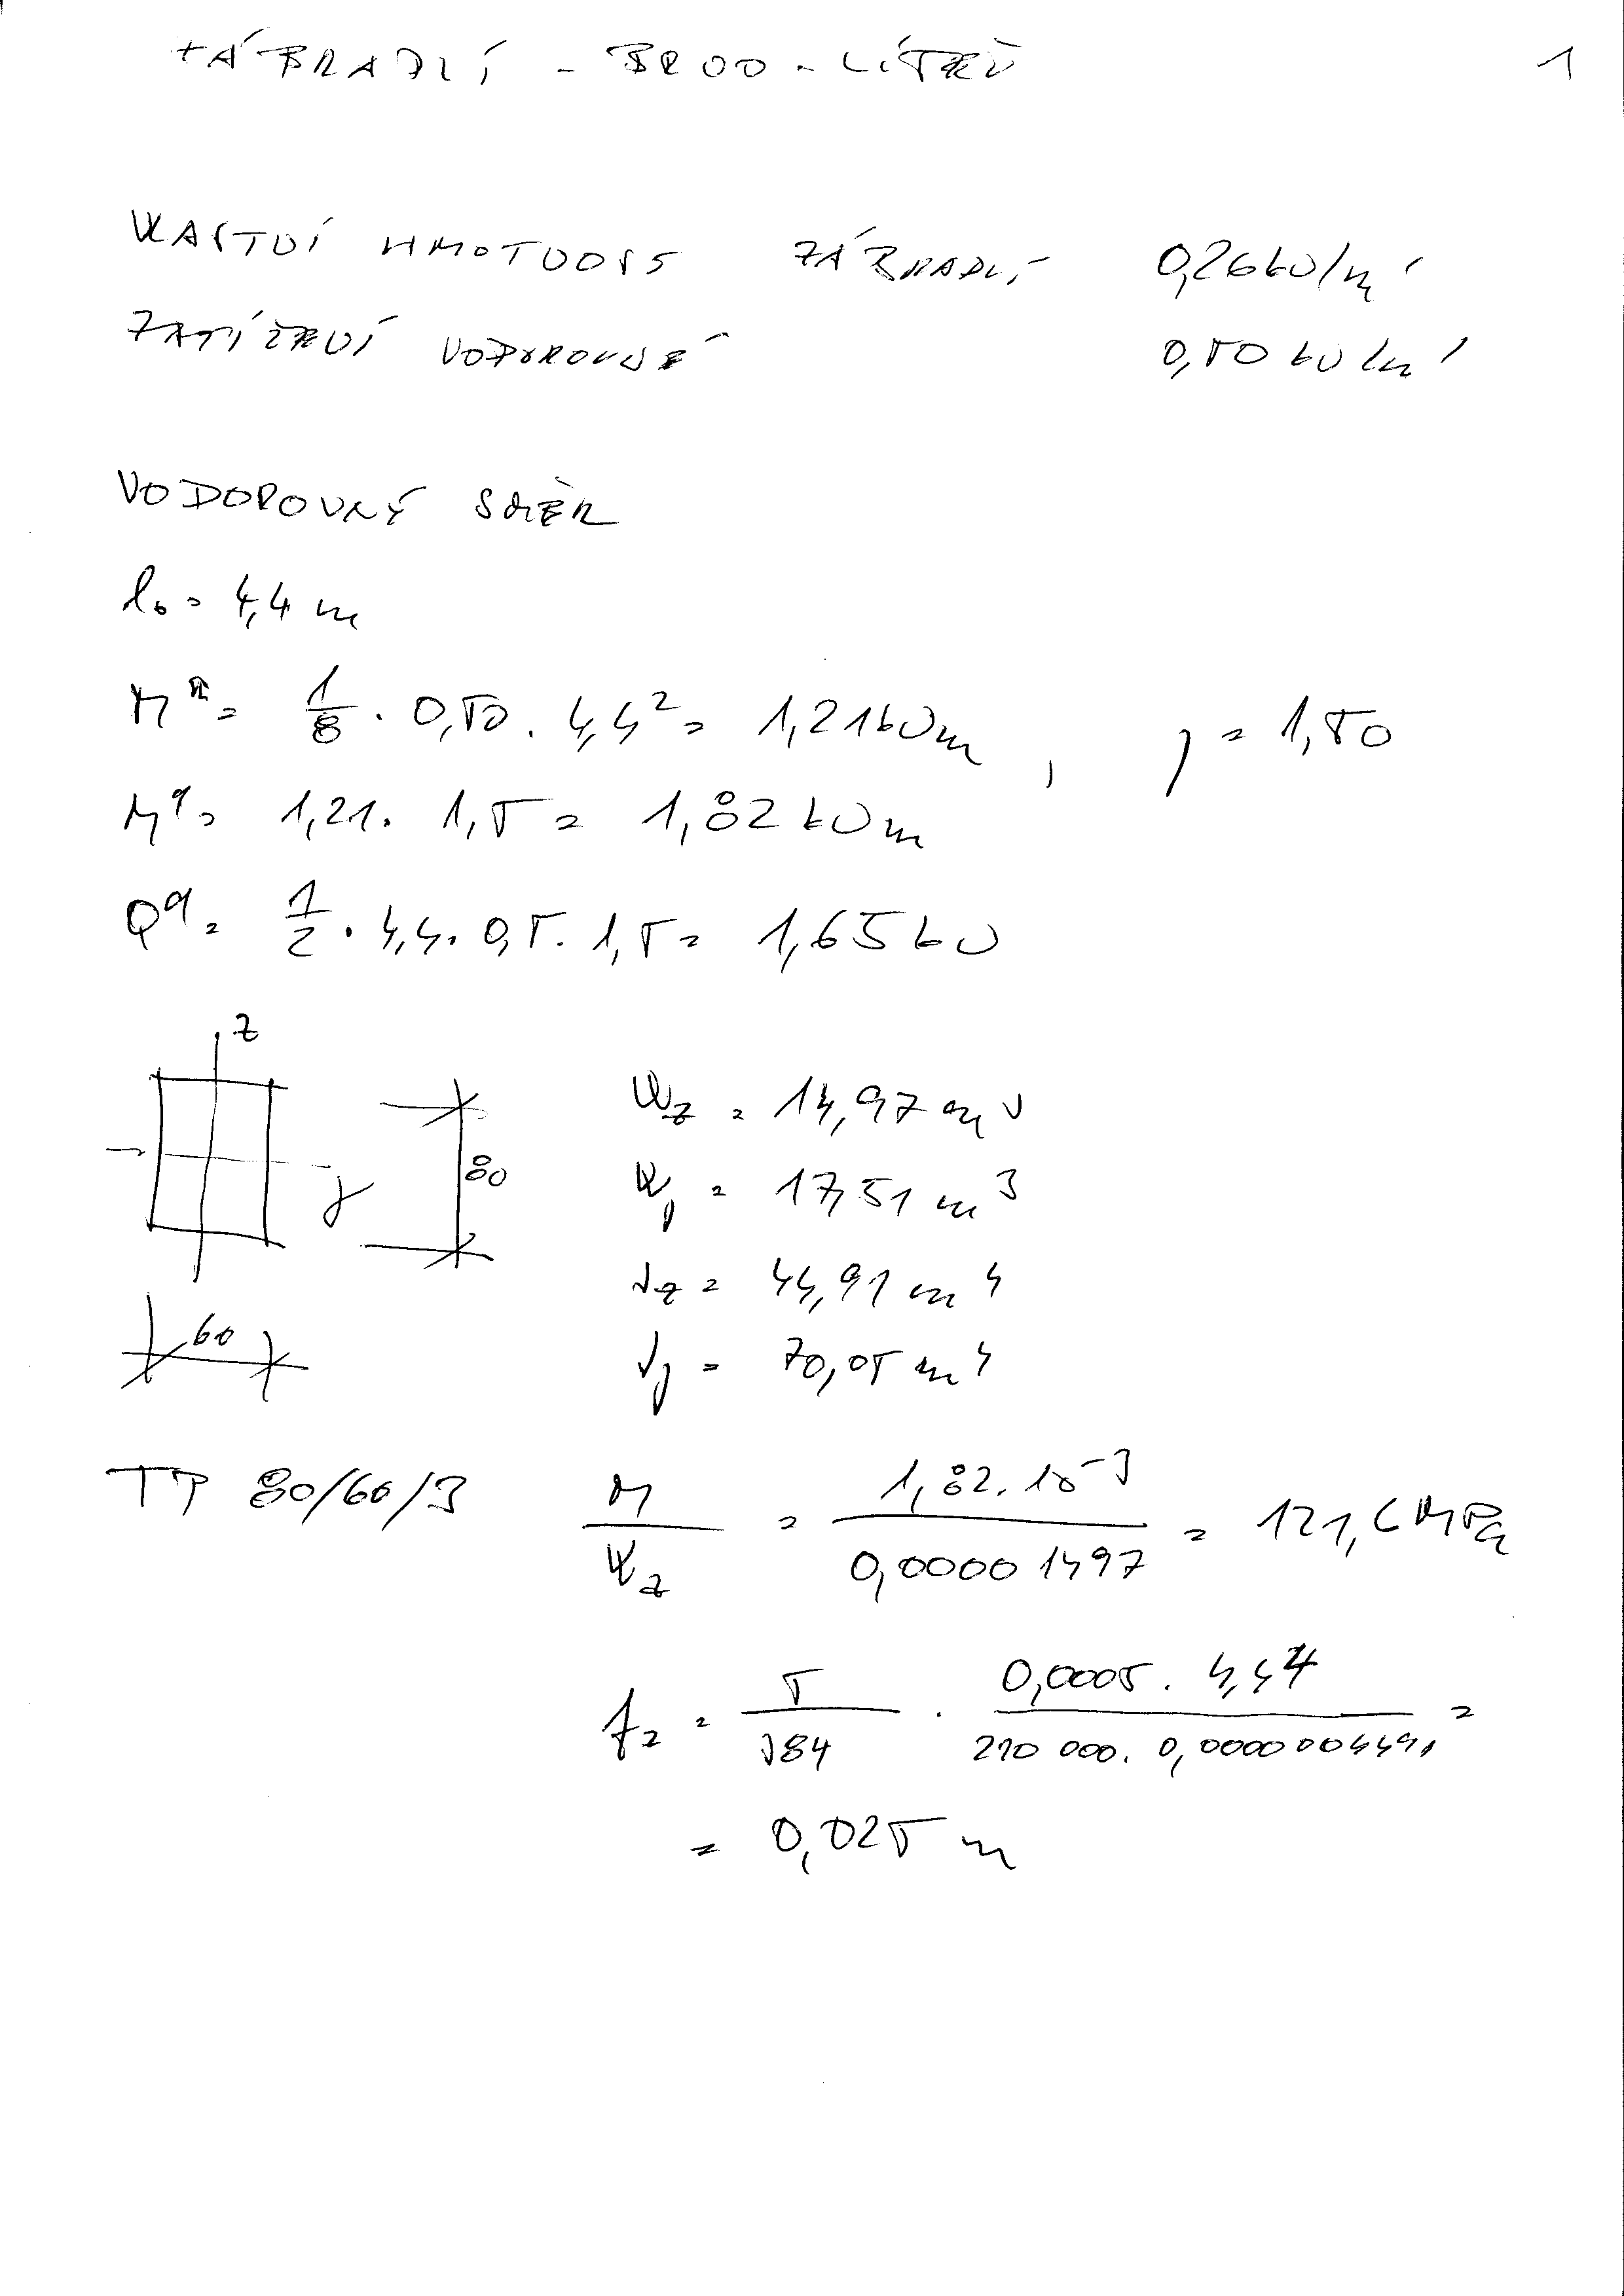 ZÁBRADLÍ - BROD - LÍTEŇ 1
VLASTNÍ HMOTNOST ZÁBRADLÍ 0,26 kN/m'
ZATÍŽENÍ VODOROVNÉ 0,50 kN/m'
VODOROVNÝ SMĚR
l₀ = 4,4 m
Mⁿ = 1/8 · 0,50 · 4,4² = 1,21 kNm , γ = 1,50
M^q = 1,21 · 1,5 = 1,82 kNm
Q^q = 1/2 · 4,4 · 0,5 · 1,5 = 1,65 kN
z
y
80
60
Wz = 14,97 m³
Wy = 17,51 m³
Jz = 44,91 m⁴
Jy = 70,05 m⁴
TP 80/60/3 M/Wz = 1,82 · 10⁻³ / 0,00001497 = 121,6 MPa
fz = 5/384 · 0,0005 · 4,4⁴ / 210 000 · 0,0000004491 =
= 0,025 m